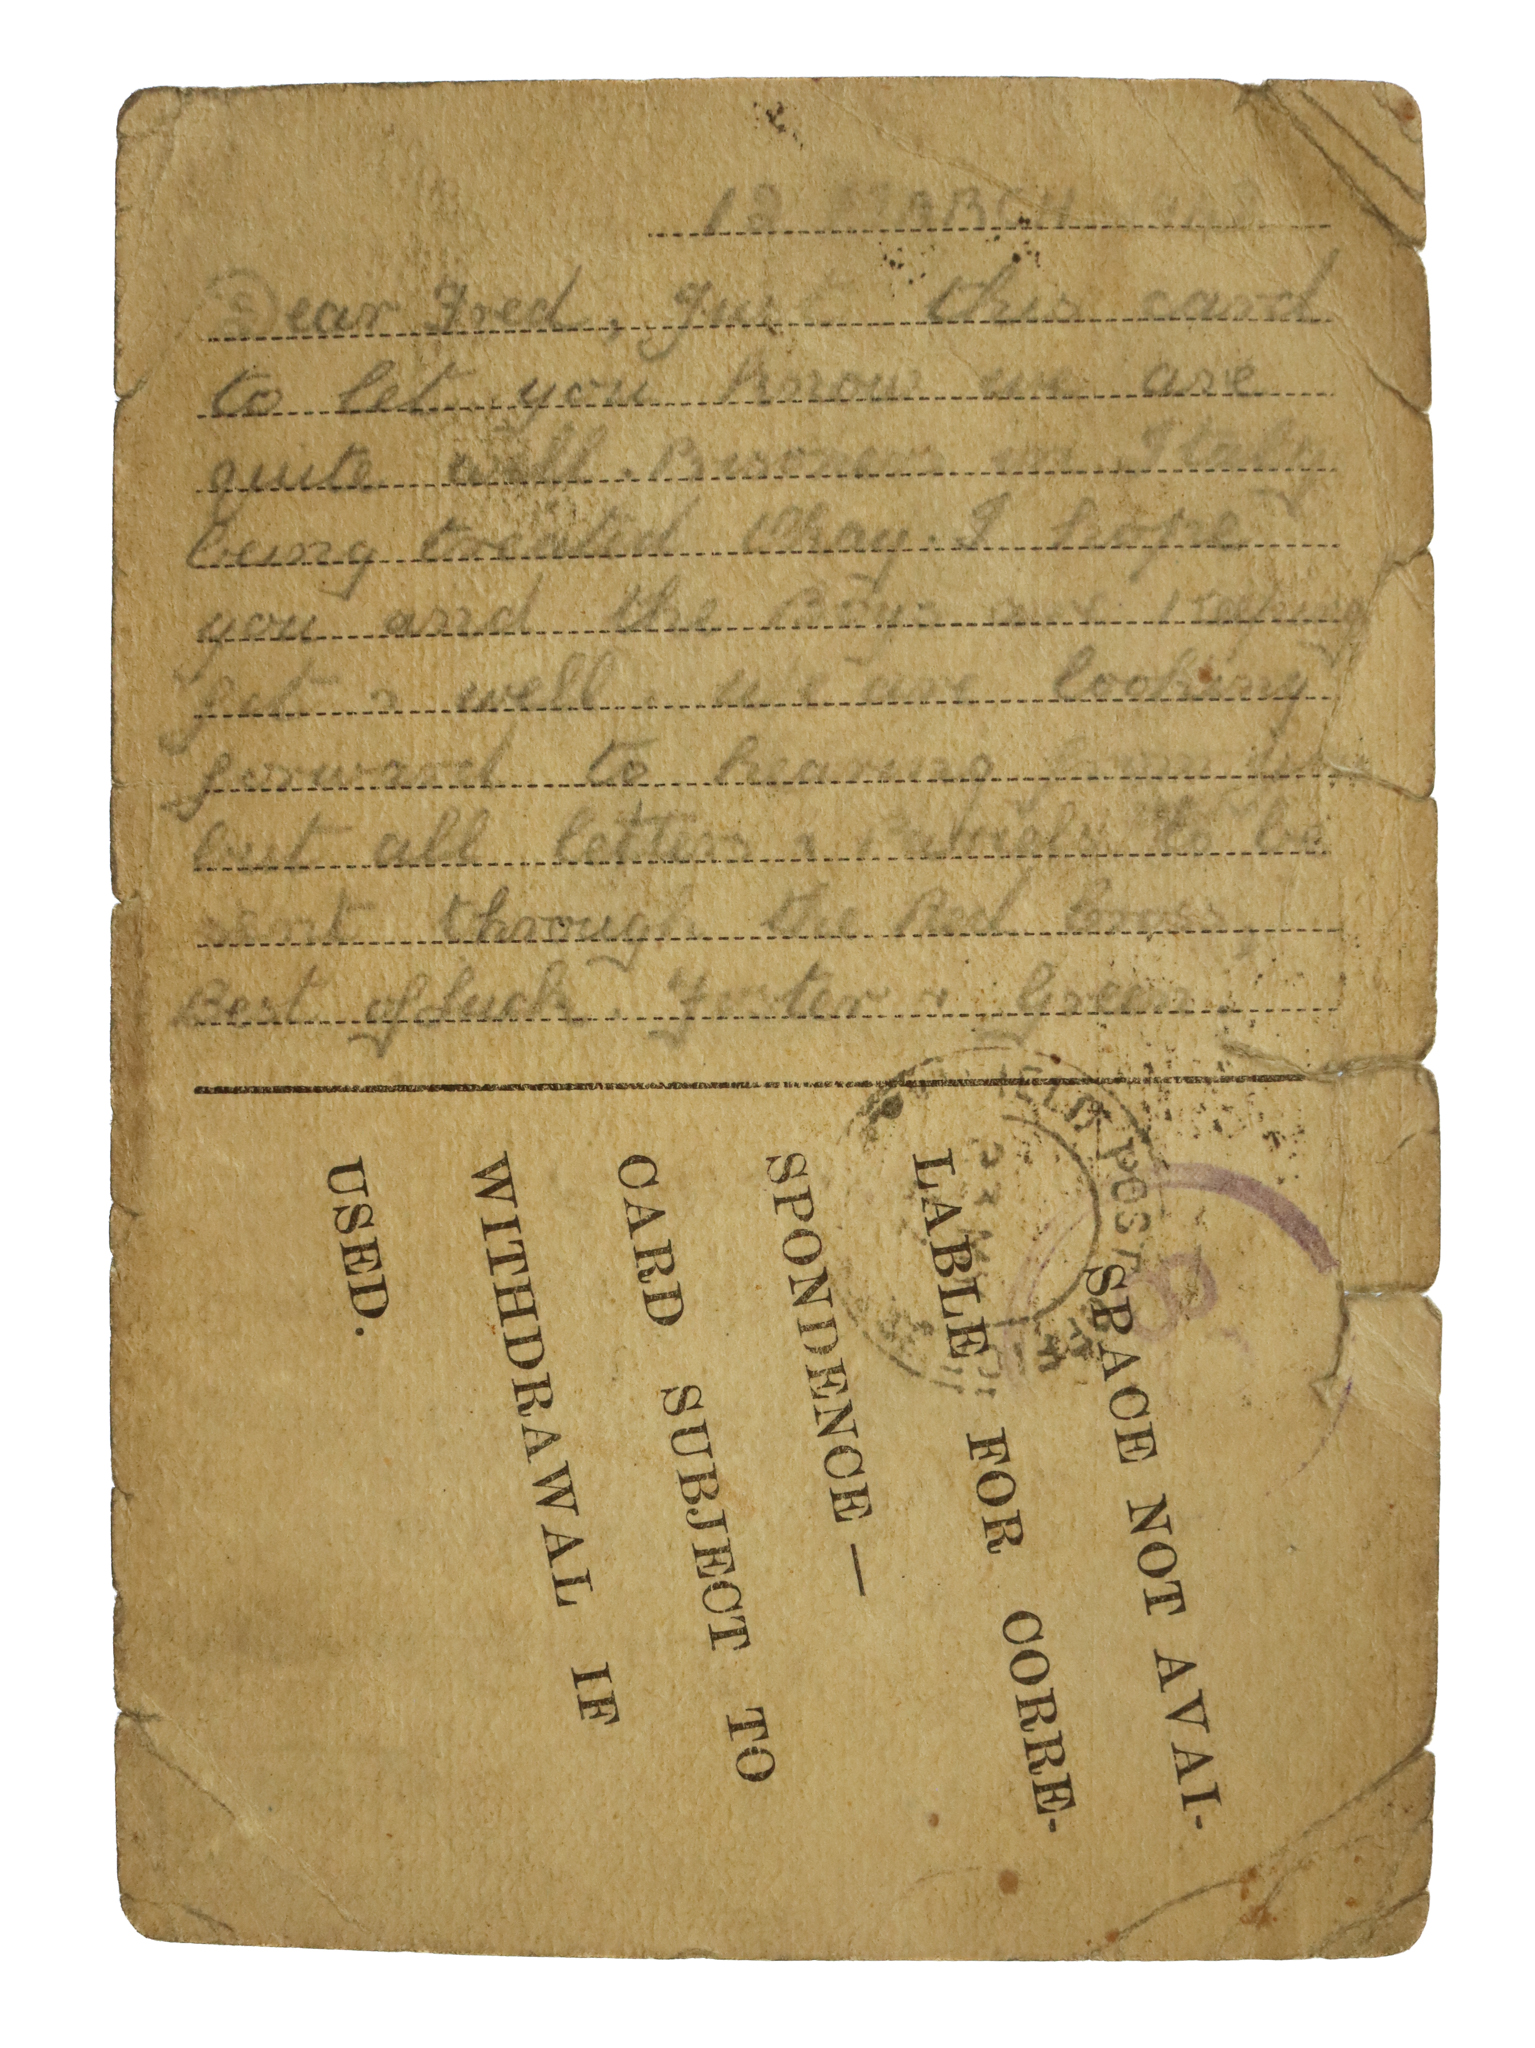 18 MARCH
Dear Fred, Just this card
to let you know we are
quite well. Prisoners in Italy
being treated Okay. I hope
you and the Boys are keeping
fit & well. we are looking
forward to hearing from
but all letters & Parcels to be
sent through the Red Cross,
Best of luck. Foster & Green.
FIELD POST
SPACE NOT AVAI-
LABLE FOR CORRE-
SPONDENCE —
CARD SUBJECT TO
WITHDRAWAL IF
USED.